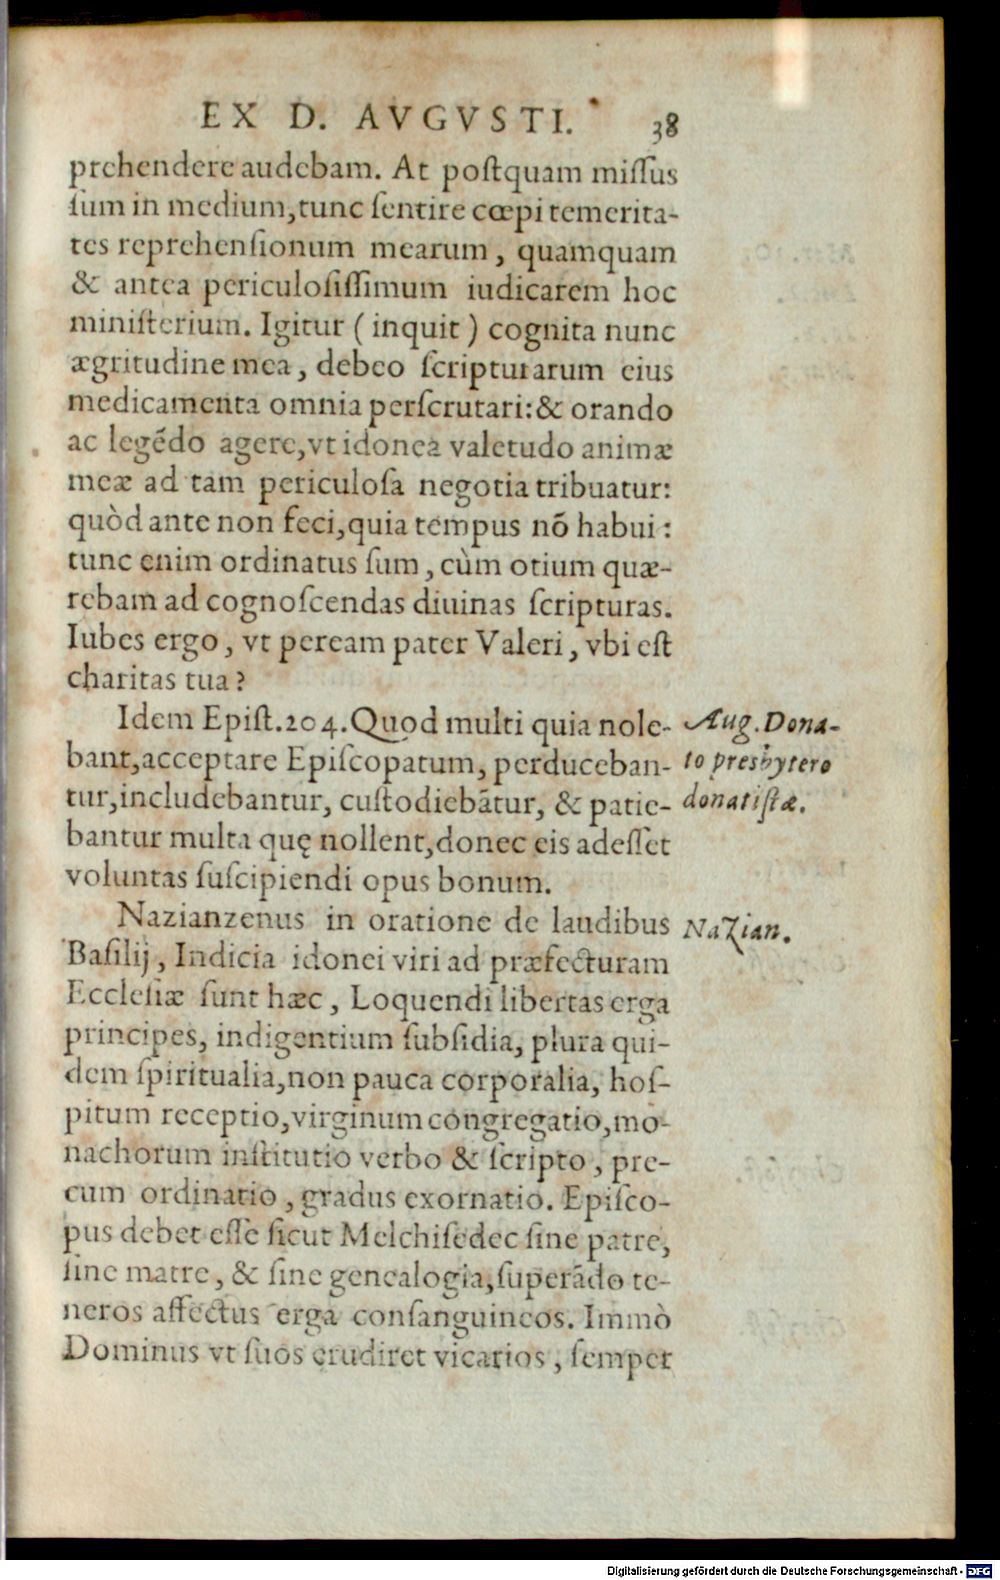 EX D. AVGVSTI. 38
prehendere audebam. At poſtquam miſſus
ſum in medium, tunc ſentire cœpi temerita-
tes reprehenſionum mearum, quamquam
& antea periculoſiſſimum iudicarem hoc
miniſterium. Igitur (inquit) cognita nunc
ægritudine mea, debeo ſcripturarum eius
medicamenta omnia perſcrutari: & orando
ac legẽdo agere, vt idonea valetudo animæ
meæ ad tam periculoſa negotia tribuatur:
quòd ante non feci, quia tempus nõ habui:
tunc enim ordinatus ſum, cùm otium quæ-
rebam ad cognoſcendas diuinas ſcripturas.
Iubes ergo, vt peream pater Valeri, vbi eſt
charitas tua?
Idem Epiſt. 204. Quod multi quia nole-
bant, acceptare Epiſcopatum, perduceban-
tur, includebantur, cuſtodiebãtur, & patie-
bantur multa quę nollent, donec eis adeſſet
voluntas ſuſcipiendi opus bonum.
Aug. Dona-
to presbytero
donatiſtæ.
Nazianzenus in oratione de laudibus
Baſilij, Indicia idonei viri ad præfecturam
Eccleſiæ ſunt hæc, Loquendi libertas erga
principes, indigentium ſubſidia, plura qui-
dem ſpiritualia, non pauca corporalia, hoſ-
pitum receptio, virginum congregatio, mo-
nachorum inſtitutio verbo & ſcripto, pre-
cum ordinatio, gradus exornatio. Epiſco-
pus debet eſſe ſicut Melchiſedec ſine patre,
ſine matre, & ſine genealogia, ſuperãdo te-
neros affectus erga conſanguineos. Immò
Dominus vt ſuos erudiret vicarios, ſemper
Nazian.
Digitalisierung gefördert durch die Deutsche Forschungsgemeinschaft - DFG